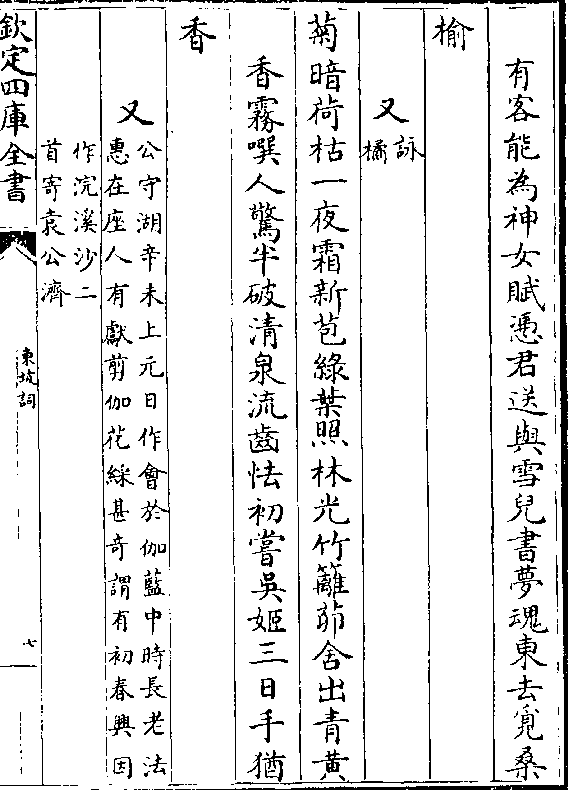 有客能為神女賦憑君送與雪兒書夢魂東去覓桑
榆
又詠
橘
菊暗荷枯一夜霜新苞綠葉照林光竹籬茆舍出青黃
香霧噀人驚半破清泉流齒怯初嘗吳姬三日手猶
香
又公守湖辛未上元日作會於伽藍中時長老法
惠在座人有獻剪伽花綵甚奇謂有初春興因
作浣溪沙二
首寄袁公濟
欽定四庫全書
東坡詞
七